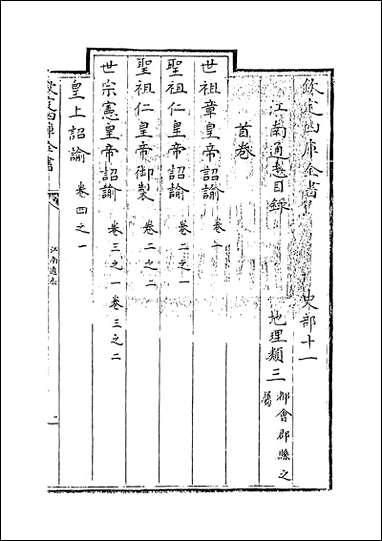 欽定四庫全書 史部十一
江南通志目錄 地理類三都會郡縣之屬
首卷
世祖章皇帝詔諭 卷一
聖祖仁皇帝詔諭 卷二之一
聖祖仁皇帝御製 卷二之二
世宗憲皇帝詔諭 卷三之一卷三之二
皇上詔諭 卷四之一
欽定四庫全書 江南通志 一